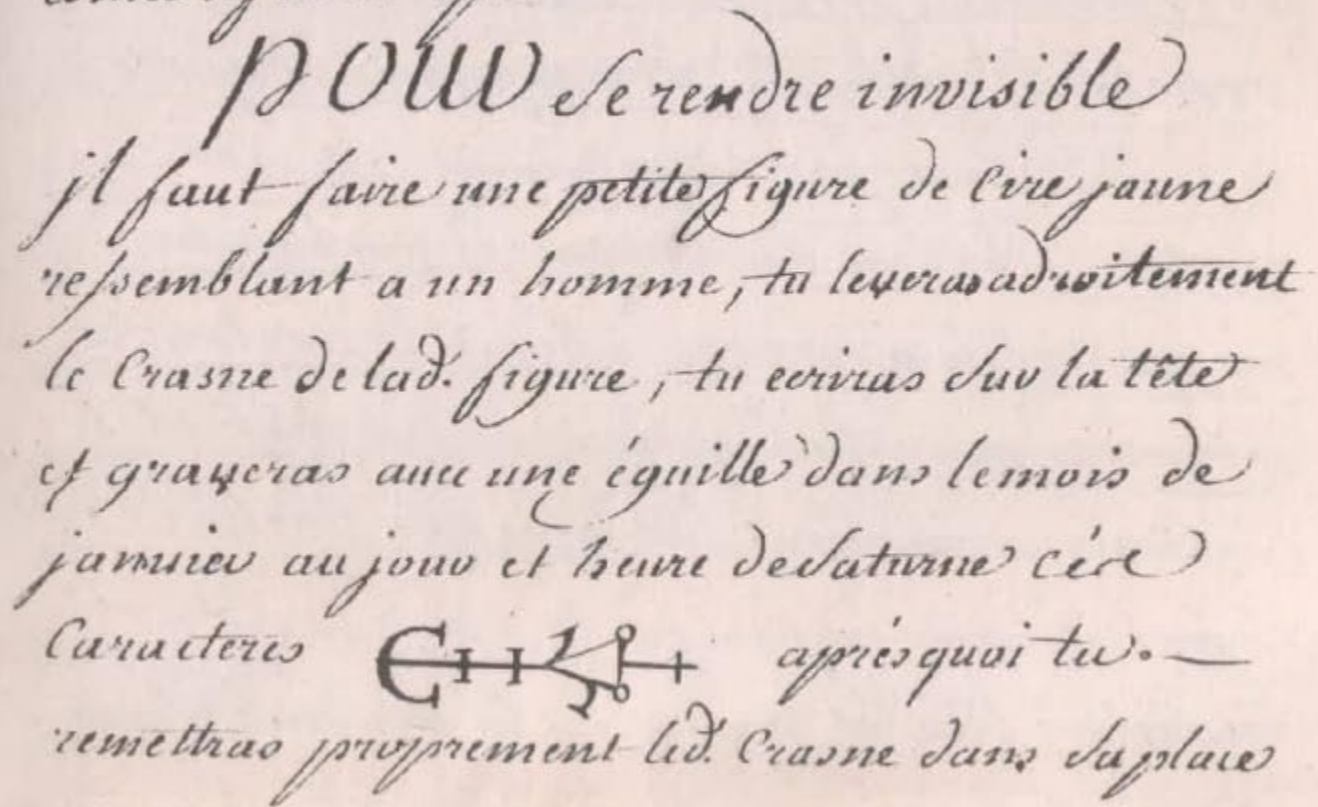 pour Se rendre invisible
il faut faire une petite figure de Cire jaune
ressemblant a un homme, tu leveras adroitement
le Crasne de lad. figure, tu ecriras Sur la tête
et graveras avec une éguille dans le mois de
janvier au jour et heure de Saturne
Caracteres après quoi tu.
remettras proprement led. Crasne dans Sa place